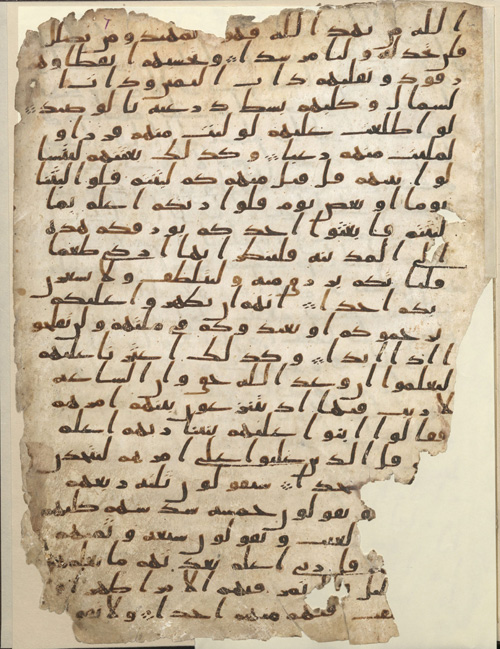 الله من يهد الله فهو المهتد ومن يضلل
فلن تجد له وليا مرشدا وتحسبهم ايقاظا وهم
رقود ونقلبهم ذات اليمين وذات ا
لشمال وكلبهم بسط ذرعيه بالوصيد
لو اطلعت عليهم لوليت منهم فررا و
لملئت منهم رعبا وكذلك بعثنهم ليتسا
لوا بينهم قل قيل منهم كم لبثتم قلوا لبثنا
يوما او بعض يوم قلوا ربكم اعلم بما
لبثتم فابعثوا احدكم بورقكم هذه
الى المدينه فلينظر ايها ازكى طعما
فلياتكم برزق منه وليتلطف ولا يشعرن
بكم احدا انهم ان يظهروا عليكم
يرجموكم او يعيدوكم في ملتهم ولن تفلحو
ا اذا ابدا وكذلك اعثرنا عليهم
ليعلموا ان وعد الله حق وان الساعه
لا ريب فيها اذ يتنزعون بينهم امرهم
فقالوا ابنوا عليهم بنينا ربهم اعلم
قل الذين غلبوا على امرهم لنتخذن
جدا سيقولون ثلثه ربعهم
و يقولون خمسه سدسهم كلبهم
لغيب ويقولون سبعه وثمنهم
قل ربي اعلم بعدتهم ما يعلمهم
ليل تمر فيهم الا مرا ظهرا
فيهم منهم احدا ولا تقو